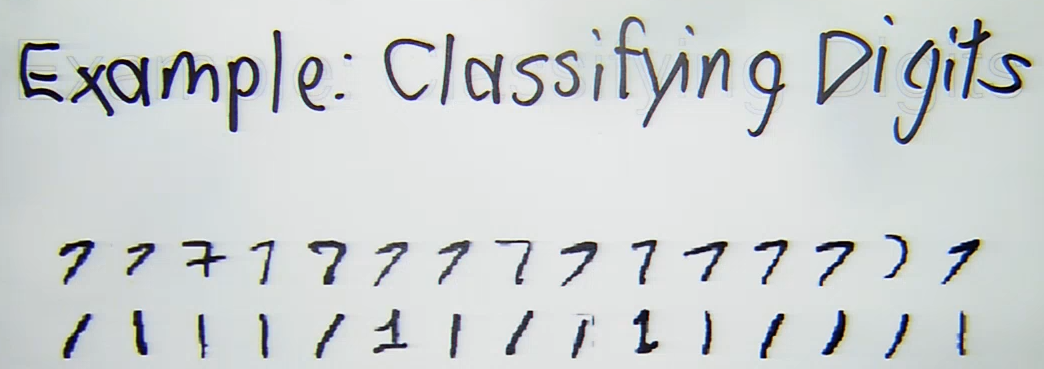 Example: Classifying Digits
7 7 7 7 7 7 7 7 7 7 7 7 7 7 7
1 1 1 1 1 1 1 1 1 1 1 1 1 1 1